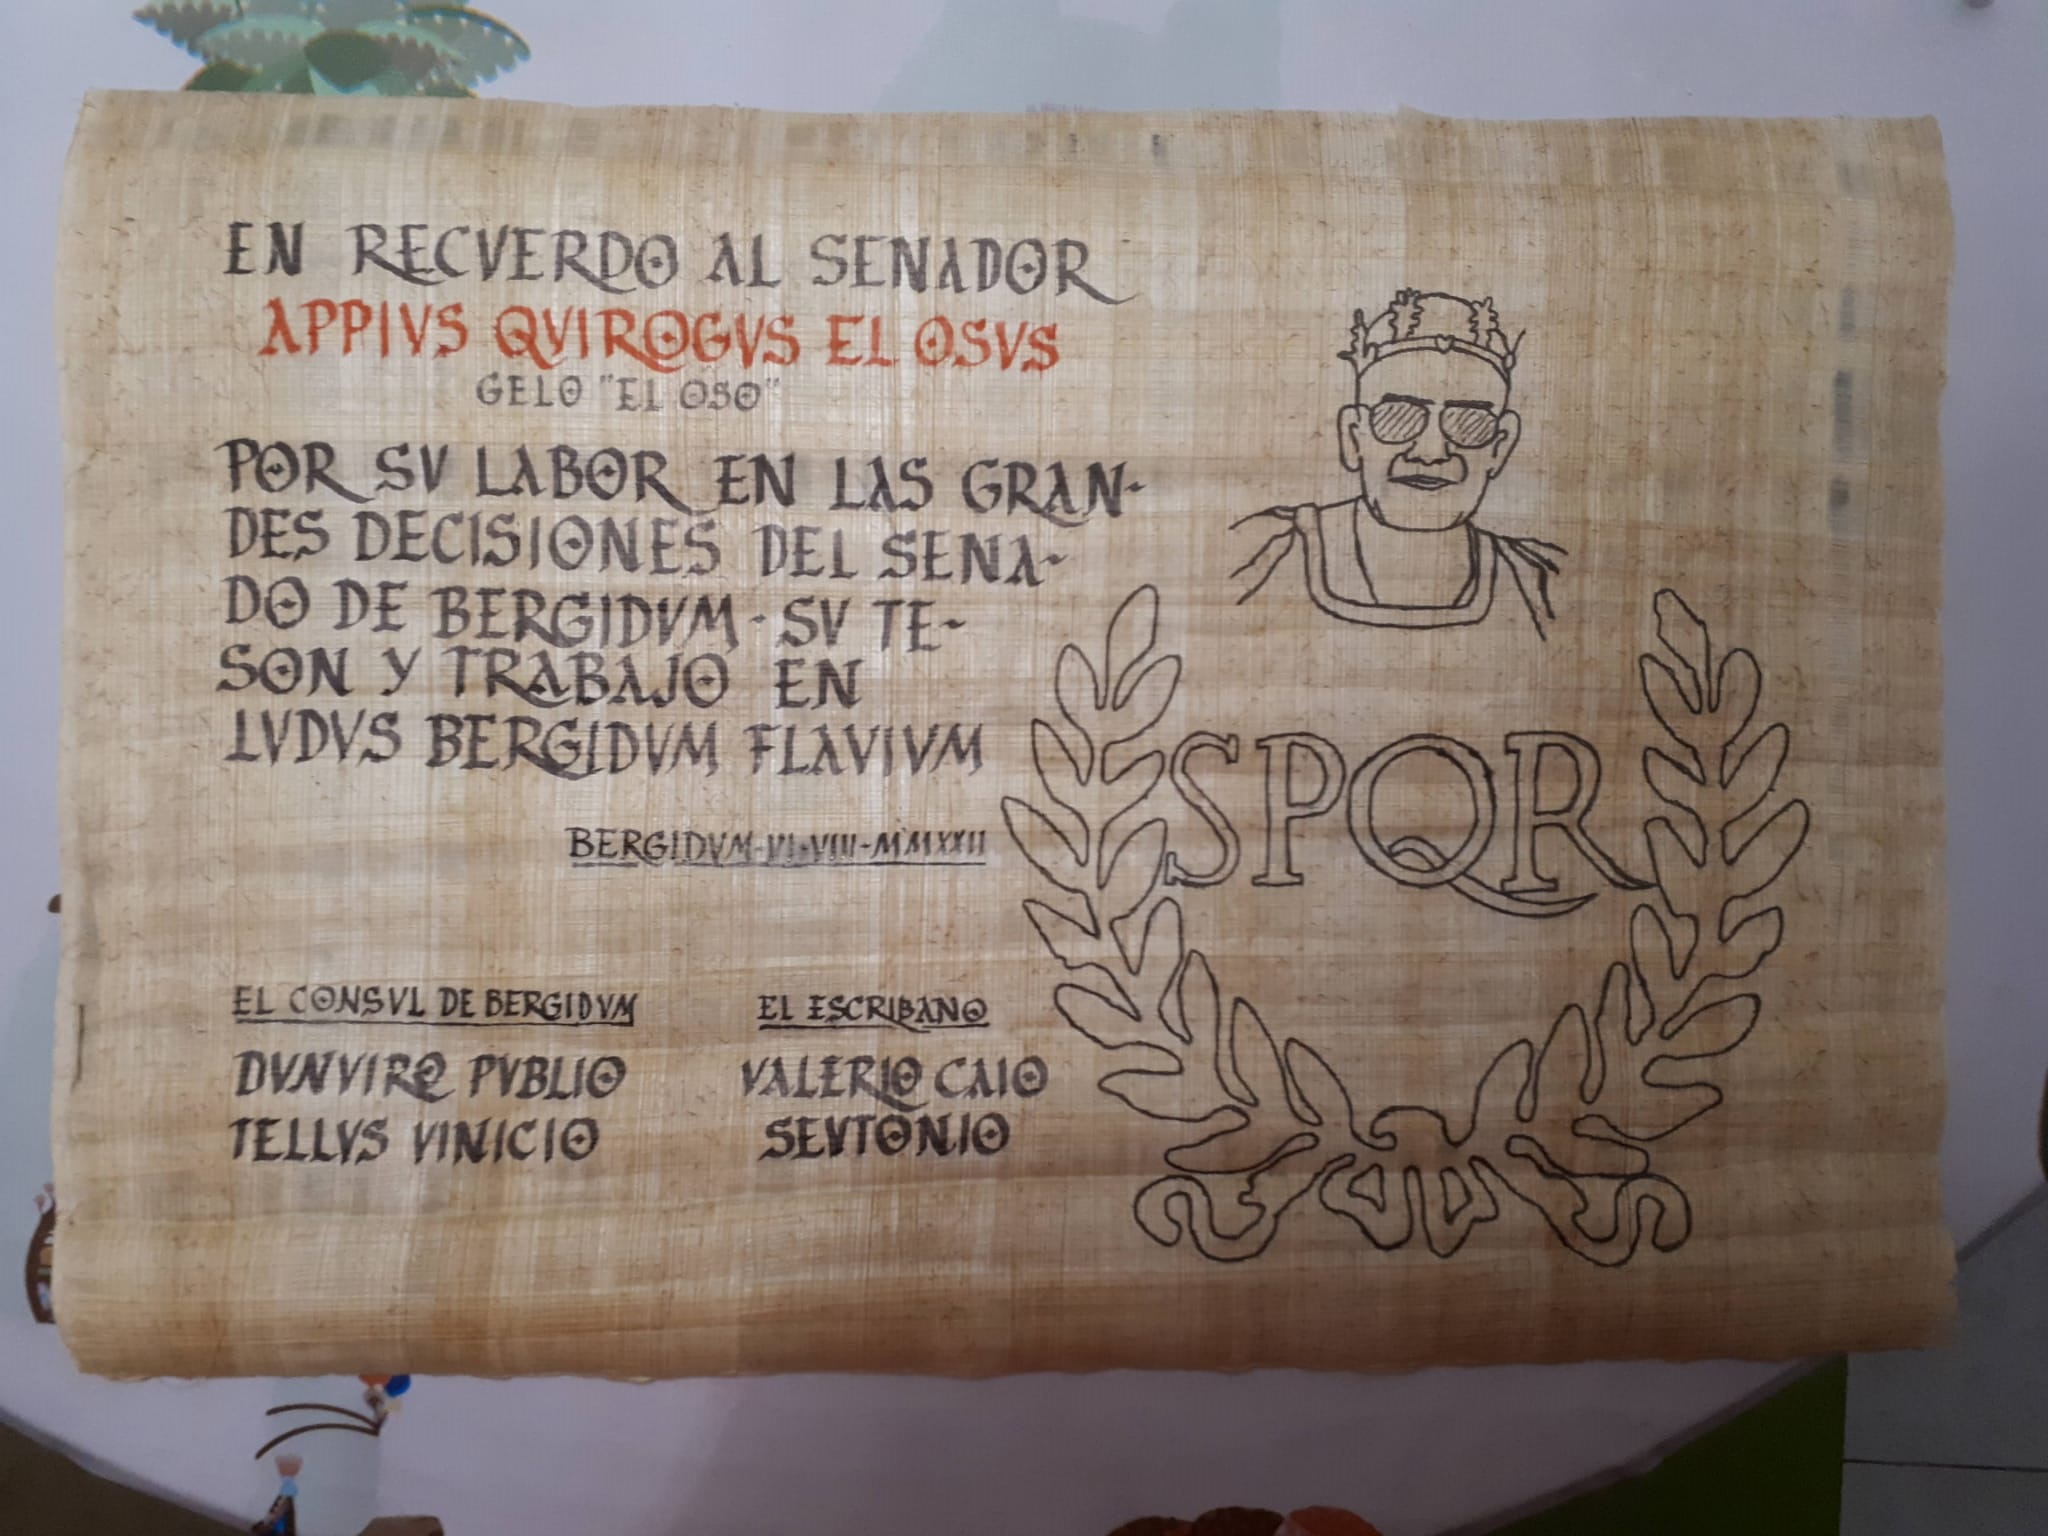 EN RECVERDO AL SENADOR
APPIVS QVIROGVS EL OSVS
GELO "EL OSO"
POR SV LABOR EN LAS GRAN-
DES DECISIONES DEL SENA-
DO DE BERGIDVM - SV TE-
SON Y TRABAJO EN
LVDVS BERGIDVM FLAVIVM
BERGIDVM-VI-VIII-MMXXII
EL CONSVL DE BERGIDVM
DVNVIRO PVBLIO
TELLVS VINICIO
EL ESCRIBANO
VALERIO CAIO
SEVTONIO
SPQR